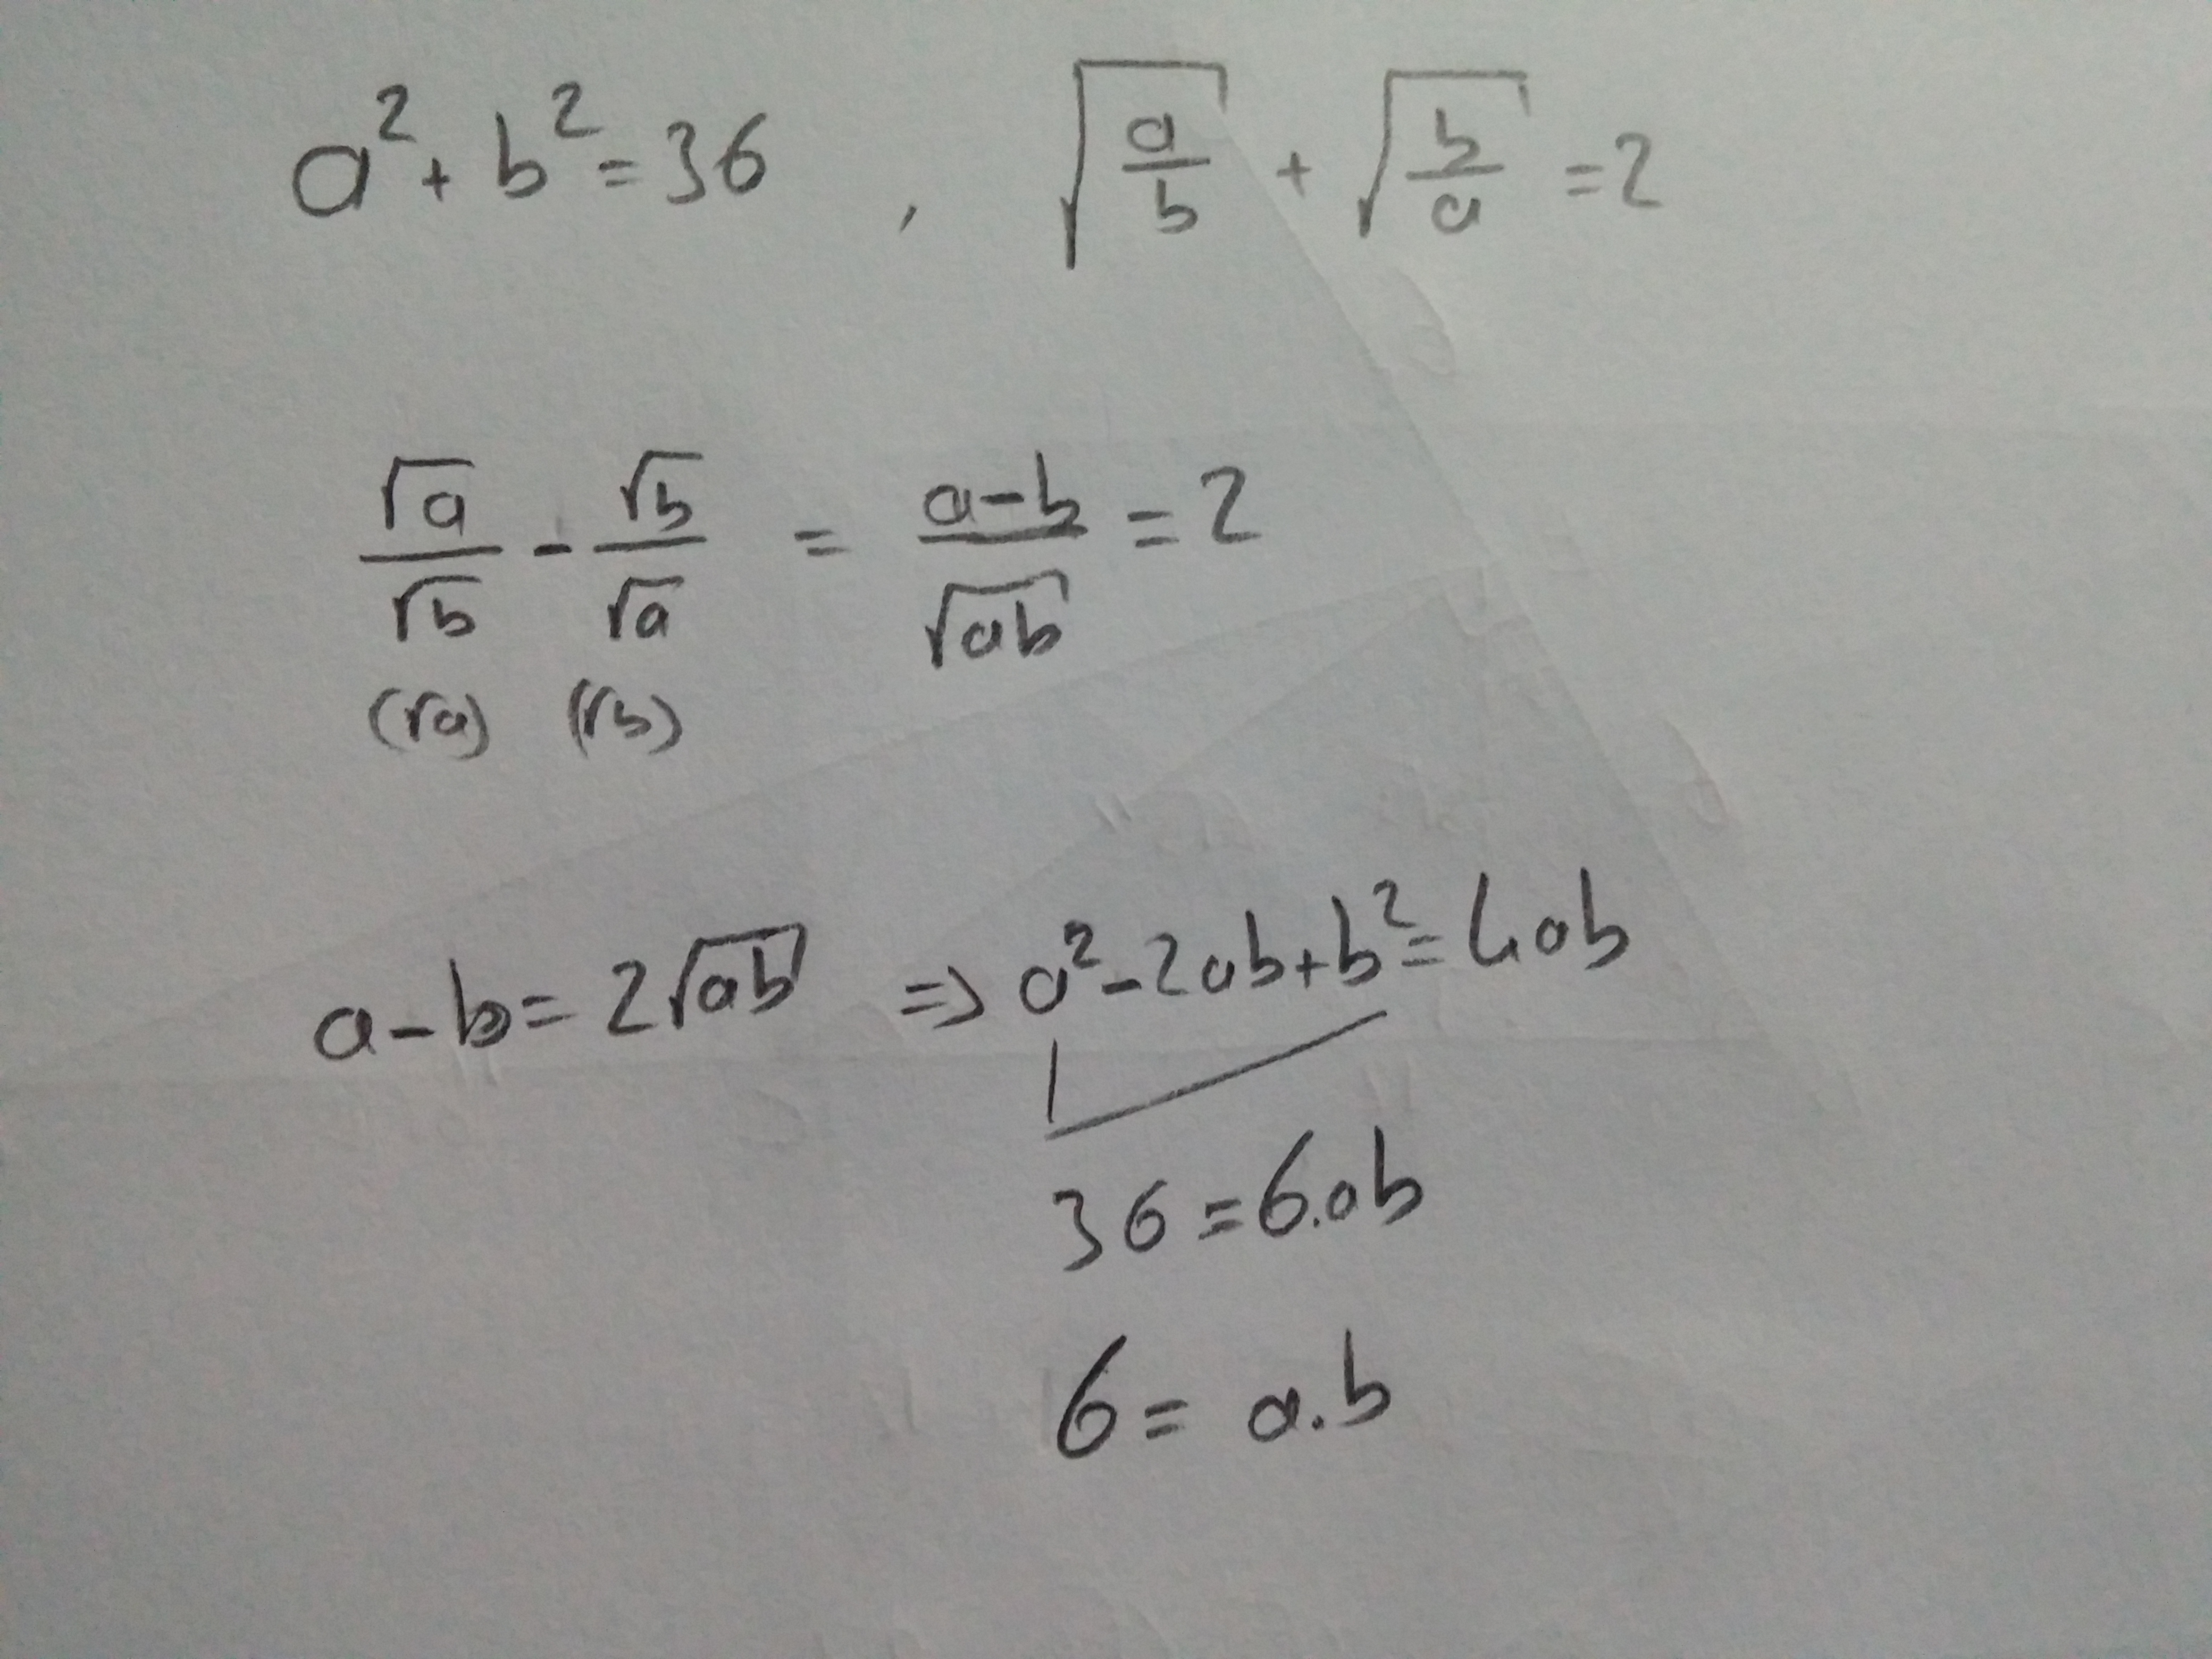 a² + b² = 36 , √(a/b) + √(b/a) = 2
√a/√b - √b/√a = (a-b)/√ab = 2
(√a) (√b)
a-b = 2√ab ⇒ a²-2ab+b² = 4ab
36 = 6.ab
6 = a.b